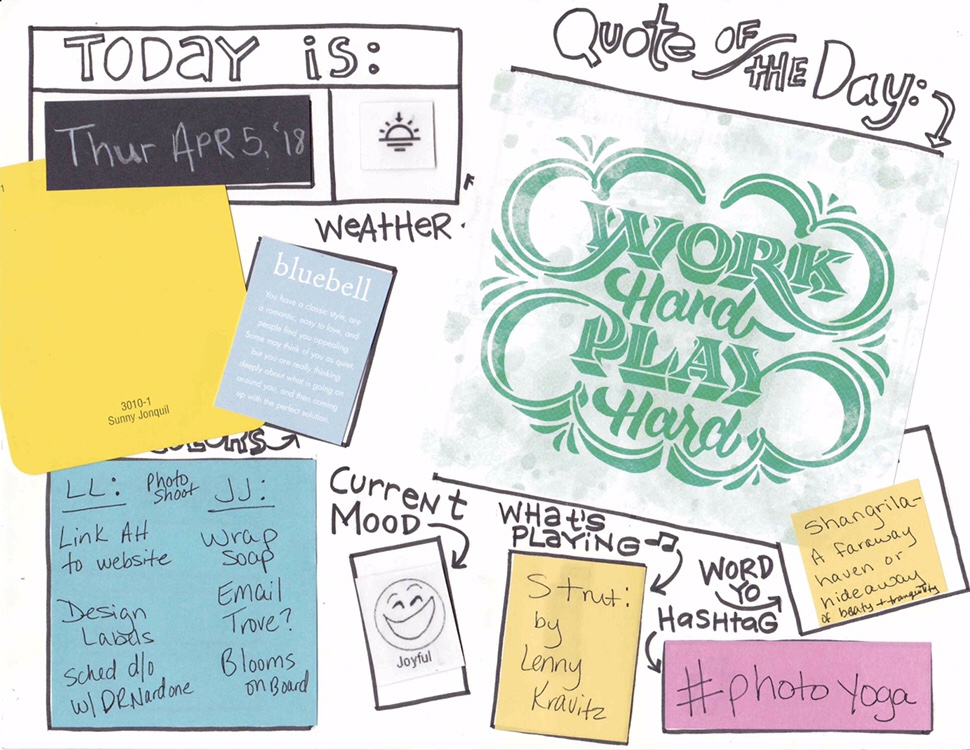 TODAY is:
Thur APR 5, '18
WEATHER
Quote OF
THE Day:
WORK
Hard
PLAY
Hard
1
3010-1
Sunny Jonquil
bluebell
You have a classic style, are
a romantic, easy to love, and
people find you appealing.
Some may think of you as quiet,
but you are really thinking
deeply about what is going on
around you, and then coming
up with the perfect solution.
COLORS
LL:
Photo
shoot
JJ:
Link AH
to website
Design
Labels
Sched d/o
w/ DR Nardone
Wrap
Soap
Email
Trove?
Blooms
on Board
Current
MOOD
Joyful
WHAT'S
PLAYING
Strut:
by
Lenny
Kravitz
WORD
YO
Shangrila-
A faraway
haven or
hideaway
of beaty + tranquility
HASHtAG
#photoyoga